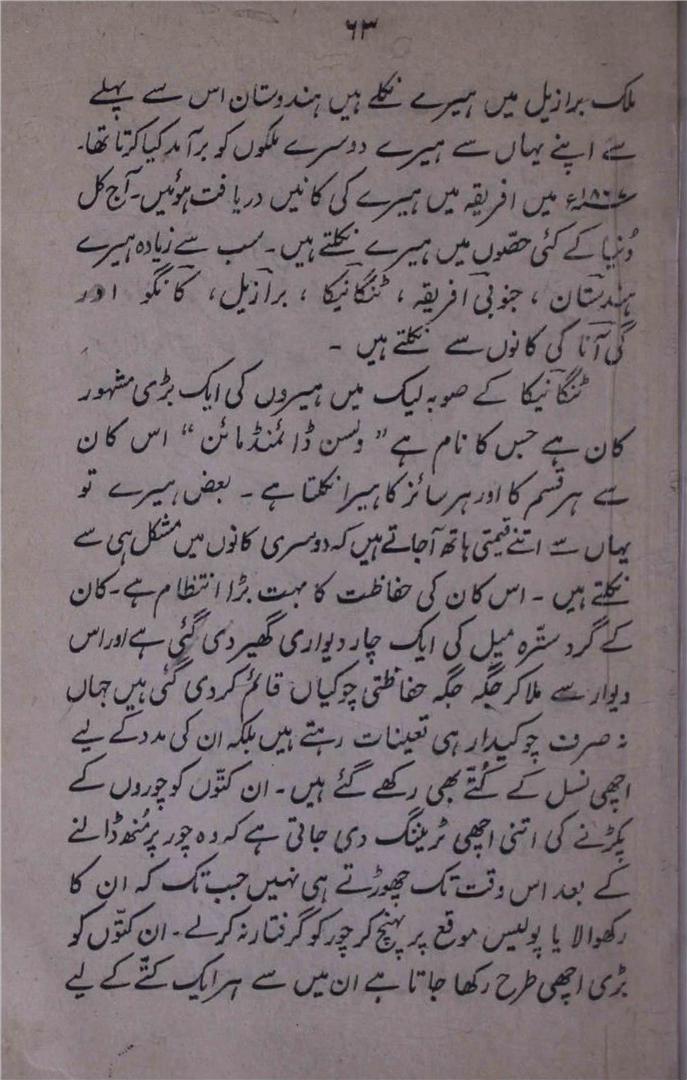 ۶۳
ملک برازیل میں ہیرے نکلے ہیں ہندوستان اس سے پہلے
سے اپنے یہاں سے ہیرے دوسرے ملکوں کو برآمد کیا کرتا تھا۔
۱۸۶۷ء میں افریقہ میں ہیرے کی کانیں دریافت ہوئیں۔ آج کل
دُنیا کے کئی حصّوں میں ہیرے نکلتے ہیں۔ سب سے زیادہ ہیرے
ہندستان ، جنوبی افریقہ ، ٹنگانیکا ، برازیل ، کانگو اور
گی آنا کی کانوں سے نکلتے ہیں ۔
ٹنگانیکا کے صوبہ لیک میں ہیروں کی ایک بڑی مشہور
کان ہے جس کا نام ہے ”ولسن ڈائمنڈ مائن“ اس کان
سے ہر قسم کا اور ہر سائز کا ہیرا نکلتا ہے ۔ بعض ہیرے تو
یہاں سے اتنے قیمتی ہاتھ آجاتے ہیں کہ دوسری کانوں میں مشکل ہی سے
نکلتے ہیں ۔ اس کان کی حفاظت کا بہت بڑا انتظام ہے۔ کان
کے گرد سترہ میل کی ایک چار دیواری گھیر دی گئی ہے اور اس
دیوار سے ملا کر جگہ جگہ حفاظتی چوکیاں قائم کردی گئی ہیں جہاں
نہ صرف چوکیدار ہی تعینات رہتے ہیں بلکہ ان کی مدد کے لیے
اچھی نسل کے کُتّے بھی رکھے گئے ہیں ۔ ان کتّوں کو چوروں کے
پکڑنے کی اتنی اچھی ٹریننگ دی جاتی ہے کہ وہ چور پر مُنھ ڈالنے
کے بعد اس وقت تک چھوڑتے ہی نہیں جب تک کہ ان کا
رکھوالا یا پولیس موقع پر پہنچ کر چور کو گرفتار نہ کرلے۔ ان کتّوں کو
بڑی اچھی طرح رکھا جاتا ہے ان میں سے ہر ایک کتّے کے لیے